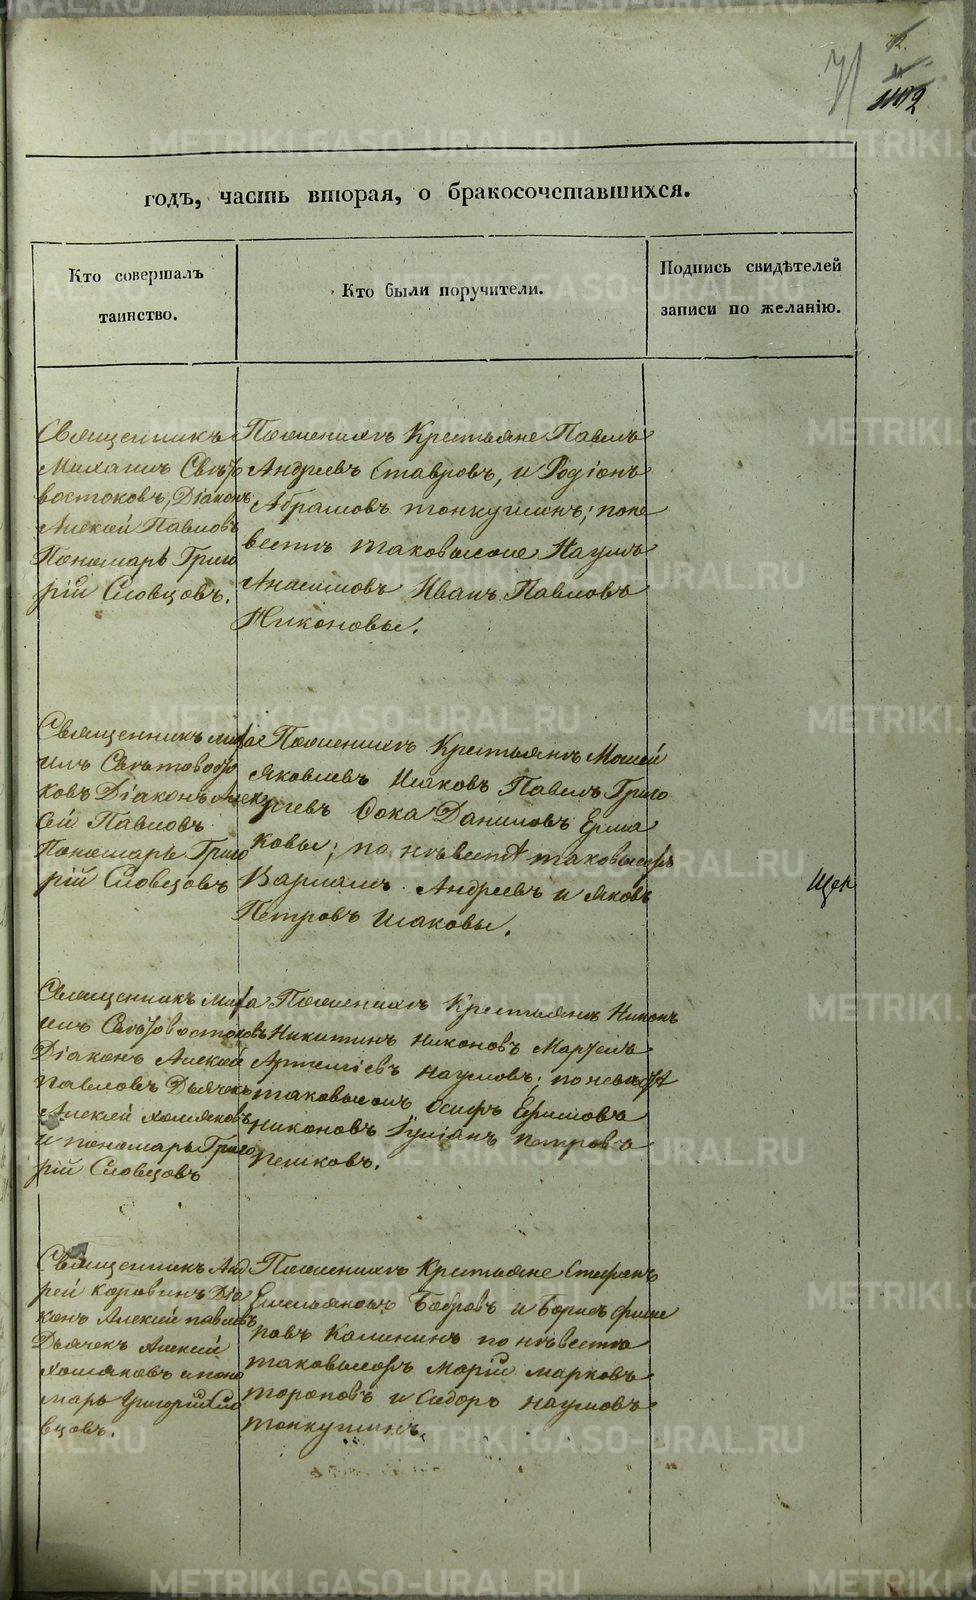 71
1102
годъ, часть вторая, о бракосочетавшихся.
Кто совершалъ
таинство.
Кто были поручители.
Подпись свидѣтелей
записи по желанію.
Священникъ
Михаилъ Свѣто
востоковъ, Діаконъ
Алексѣй Павловъ
Пономарь Григо
рій Словцовъ.
Поженихѣ Крестьяне Павелъ
Андреевъ Ставровъ, и Родіонъ
Абрамовъ тонкушинъ; поне
вестѣ таковыеже Наумъ
Анисимовъ Иванъ Павловъ
Никоновы.
Священникъ миха
илъ Свѣтовосто
ковъ Діаконъ Алек
сѣй Павловъ
Пономарь Григо
рій Словцовъ
Поженихѣ Крестьянѣ Мосей
Яковлевъ Исаковъ Павелъ Григо
рьевъ Фока Даниловъ Ерма
ковы; по нѣвестѣ таковыежъ
Варламъ Андреевъ и яковъ
Петровъ исаковы.
Священникъ миха
илъ Свѣтовостоковъ
Діаконъ Алексѣй
Павловъ Дьячекъ
Алексѣй хомяковъ
и пономарь Григо
рій Словцовъ
Поженихѣ Крестьянѣ Никонъ
Никитинъ никоновъ
Артеміевъ наумовъ; поневестѣ
таковыежъ Осипъ Ефимовъ
никоновъ петровъ
пешковъ.
Священникъ Анд
рей коровинъ Діа
конъ Алексій павловъ
Дьячекъ Алексѣй
хомяковъ ипоно
марь Григорій Сло
вцовъ.
Поженихѣ Крестьяне Стефанъ
Емельяновъ Бобровъ и борисъ филип
повъ Калининъ по нѣвестѣ
таковыежъ марковъ
тороповъ и Сидоръ наумовъ
тонкушинъ.
METRIKI.GASO-URAL.RU